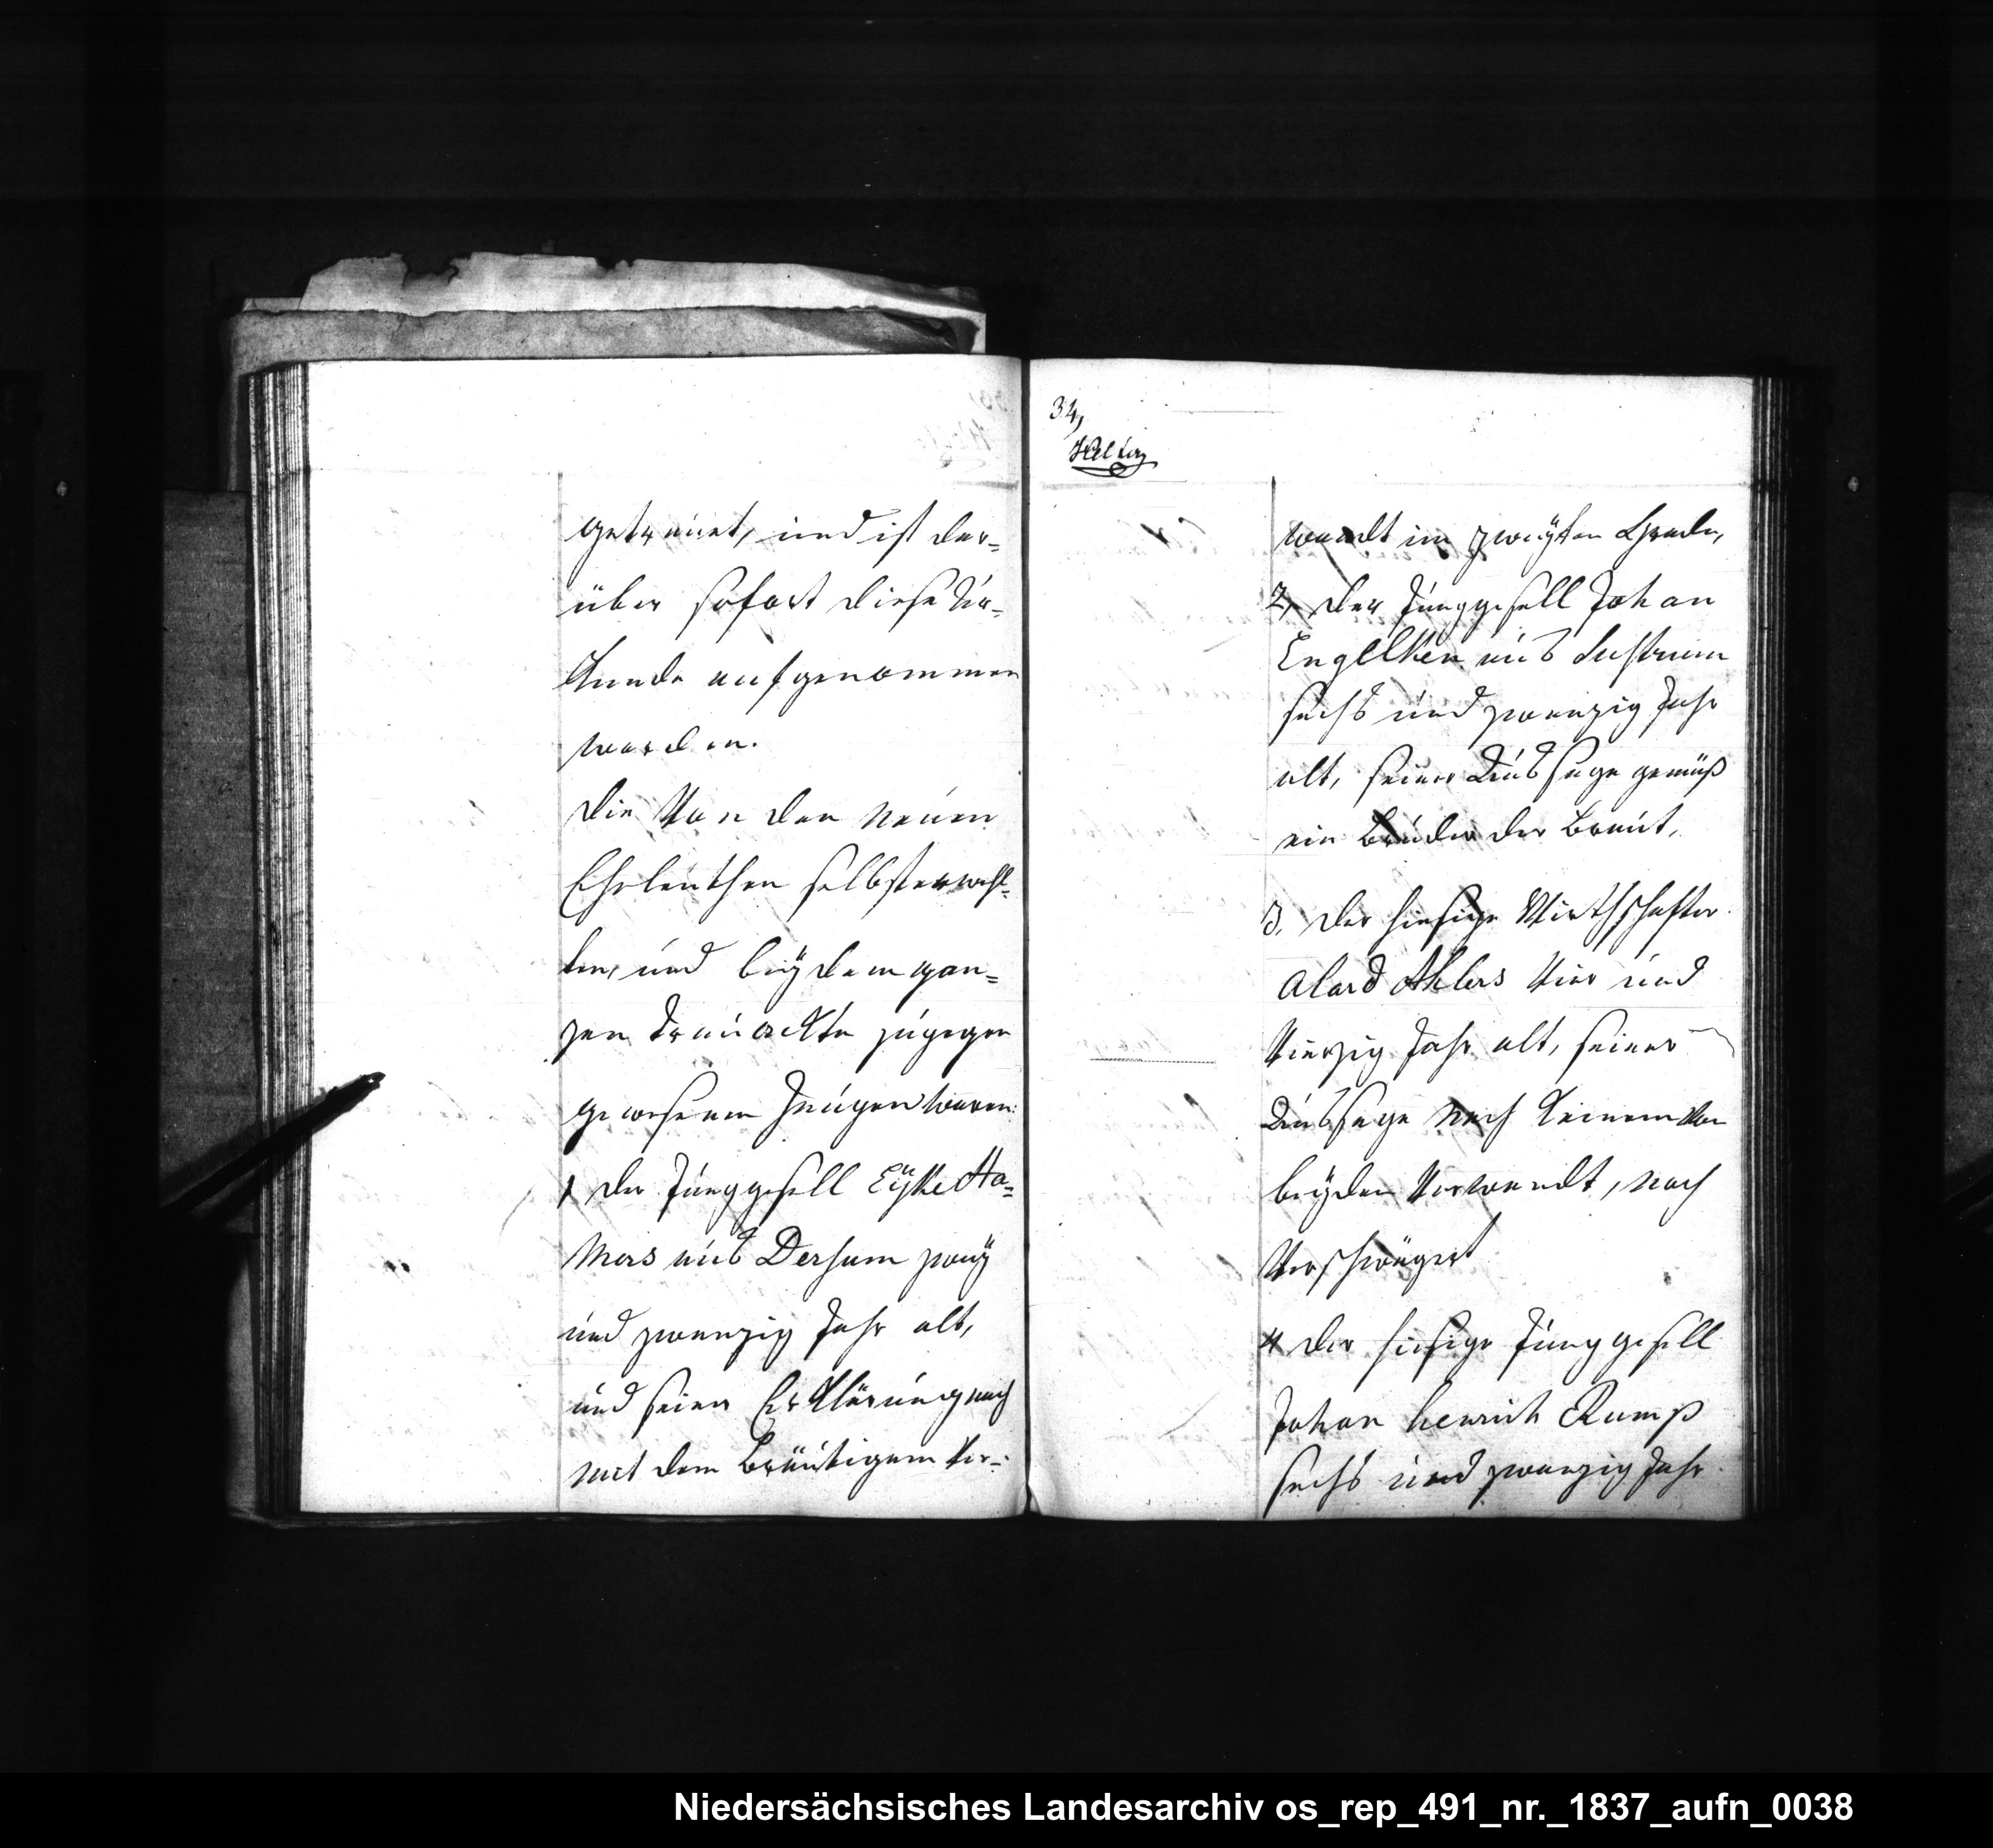 getrauet, und ist dar-
über sofort diese Ur-
kunde aufgenommen
worden.
Die Von den neuen
Eheleuthen selbsterwehl-
ten, und beÿ dem gan-
zen Trauackte zugegen
gewesenen Zeugen waren:
1 der Junggesell Eÿke Ha-
mers aus Dersum zweÿ
und zwanzig Jahr alt,
und seiner Erklärung nach
mit dem Bräutigam Ver-
34,
wandt im zweÿten Grade,
2, der Junggesell Johan
Engelken aus Sustrum
sechs und zwanzig Jahr
alt, seiner Aussage gemäß
ein Bruder der Braut,
3. der hiesige Wirthschafter
Alard Ahlers Vier und
Vierzig Jahr alt, seiner
Aussage nach keinem Von
beÿden Verwandt, noch
Verschwägert
4 der hiesige Junggesell
Johan henrich Rump
sechs und zwanzig Jahr
Niedersächsisches Landesarchiv os_rep_491_nr._1837_aufn_0038